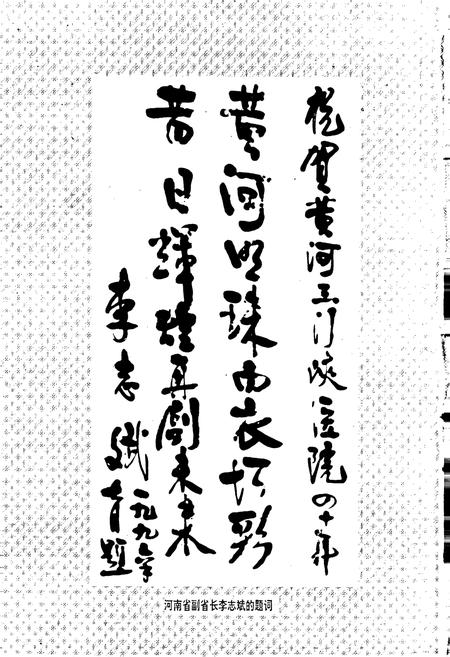 祝贺黄河三门峡医院四十年
黄河明珠白衣彩
昔日辉煌再创未来
李志斌题
一九九年
河南省副省长李志斌的题词